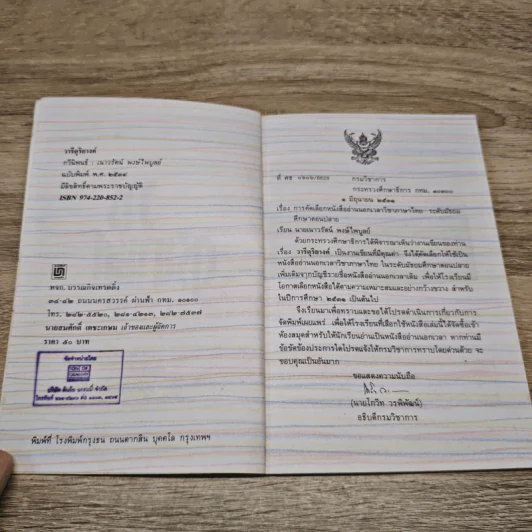 วารีดุริยางค์
กวีนิพนธ์ : เนาวรัตน์ พงษ์ไพบูลย์
ฉบับพิมพ์ พ.ศ. ๒๕๓๔
มีลิขสิทธิ์ตามพระราชบัญญัติ
ISBN 974-220-852-2
หจก. บรรณกิจเทรดดิ้ง
๓๔-๔๒ ถนนนครสวรรค์ ผ่านฟ้า กทม. ๑๐๑๐๐
โทร.
นายสมศักดิ์ เตชะเกษม เจ้าของและผู้จัดการ
ราคา ๕๐ บาท
จัดจำหน่ายโดย
พิมพ์ที่ โรงพิมพ์กรุงธน ถนนตากสิน บุคคโล กรุงเทพฯ
ที่ ศธ กรมวิชาการ
กระทรวงศึกษาธิการ กทม. ๑๐๓๐๐
๑ มิถุนายน ๒๕๓๑
เรื่อง การคัดเลือกหนังสืออ่านนอกเวลาวิชาภาษาไทย ระดับมัธยม
ศึกษาตอนปลาย
เรียน นายเนาวรัตน์ พงษ์ไพบูลย์
ด้วยกระทรวงศึกษาธิการได้พิจารณาเห็นว่างานเขียนของท่าน
เรื่อง วารีดุริยางค์ เป็นงานเขียนที่มีคุณค่า จึงได้คัดเลือกให้ใช้เป็น
หนังสืออ่านนอกเวลาวิชาภาษาไทย ในระดับมัธยมศึกษาตอนปลาย
เพิ่มเติมจากบัญชีรายชื่อหนังสืออ่านนอกเวลาเดิม เพื่อให้โรงเรียนมี
โอกาสเลือกหนังสือได้ตามความเหมาะสมและอย่างกว้างขวาง สำหรับ
ในปีการศึกษา ๒๕๓๑ เป็นต้นไป
จึงเรียนมาเพื่อทราบและขอได้โปรดดำเนินการเกี่ยวกับการ
จัดพิมพ์เผยแพร่ เพื่อให้โรงเรียนที่เลือกใช้หนังสือเล่มนี้ได้จัดซื้อเข้า
ห้องสมุดสำหรับให้นักเรียนอ่านเป็นหนังสือนอกเวลา หากท่านมี
ข้อขัดข้องประการใดโปรดแจ้งให้กรมวิชาการทราบโดยด่วนด้วย จะ
ขอบคุณเป็นอันมาก
ขอแสดงความนับถือ
(นายโกวิท วรพิพัฒน์)
อธิบดีกรมวิชาการ